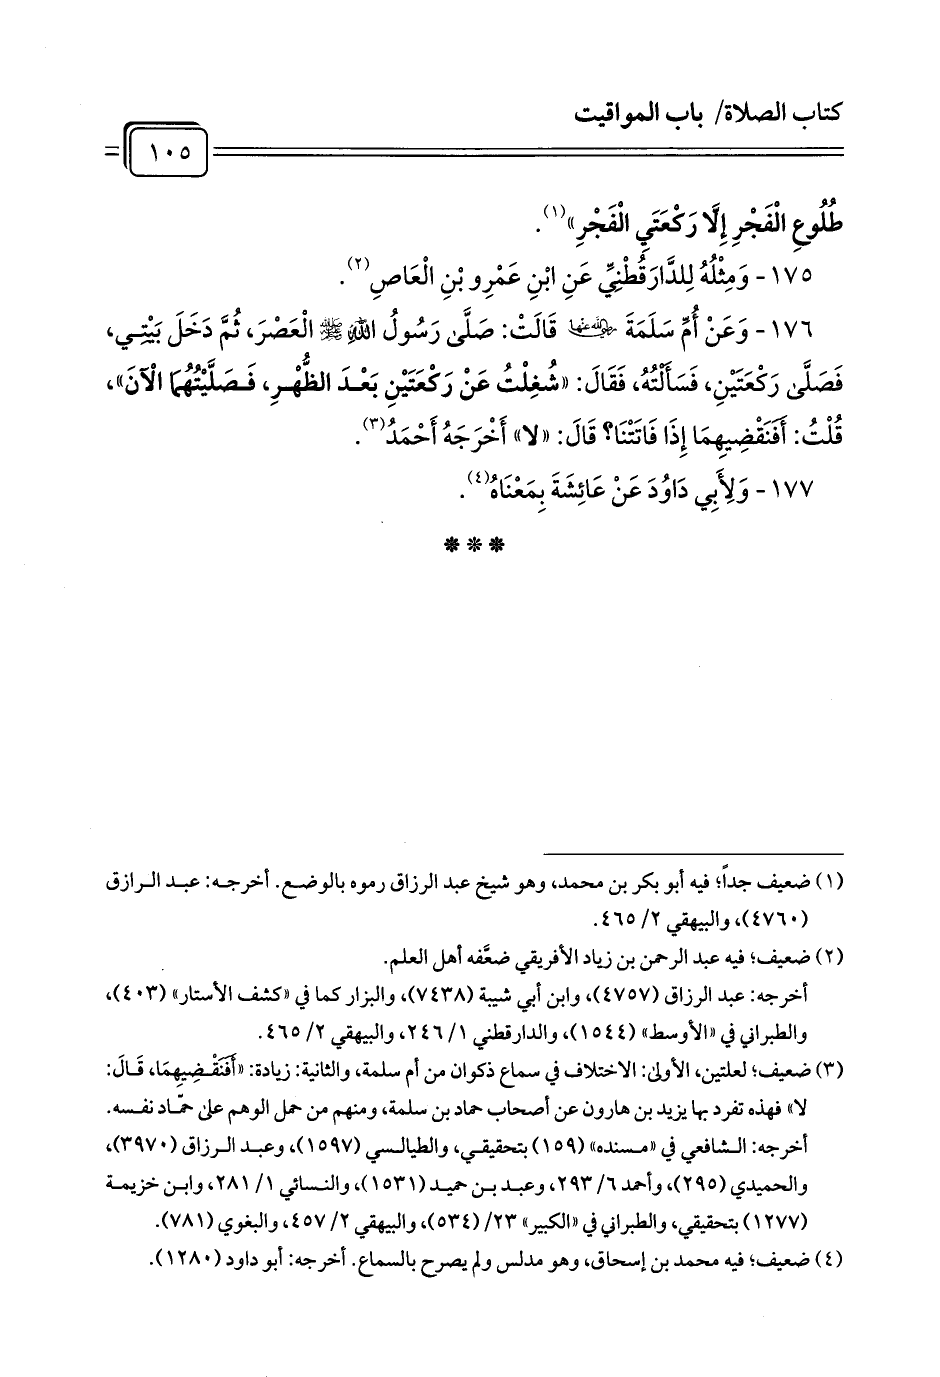 كتاب الصلاة/ باب المواقيت
١٠٥
طُلُوعِ الْفَجْرِ إِلَّا رَكْعَتَيِ الْفَجْرِ»(١).
١٧٥- وَمِثْلُهُ لِلدَّارَقُطْنِيِّ عَنِ ابْنِ عَمْرِو بْنِ الْعَاصِ(٢).
١٧٦- وَعَنْ أُمِّ سَلَمَةَ رضي الله عنها قَالَتْ: صَلَّى رَسُولُ اللهِ ﷺ الْعَصْرَ، ثُمَّ دَخَلَ بَيْتِي،
فَصَلَّى رَكْعَتَيْنِ، فَسَأَلْتُهُ، فَقَالَ: «شُغِلْتُ عَنْ رَكْعَتَيْنِ بَعْدَ الظُّهْرِ، فَصَلَّيْتُهُمَا الْآنَ»،
قُلْتُ: أَفَنَقْضِيهِمَا إِذَا فَاتَتْنَا؟ قَالَ: «لا» أَخْرَجَهُ أَحْمَدُ(٣).
١٧٧- وَلِأَبِي دَاوُدَ عَنْ عَائِشَةَ بِمَعْنَاهُ(٤).
***
(١) ضعيف جداً؛ فيه أبو بكر بن محمد، وهو شيخ عبد الرزاق رموه بالوضع. أخرجه: عبد الرازق
(٤٧٦٠)، والبيهقي ٢/ ٤٦٥.
(٢) ضعيف؛ فيه عبد الرحمن بن زياد الأفريقي ضعَّفه أهل العلم.
أخرجه: عبد الرزاق (٤٧٥٧)، وابن أبي شيبة (٧٤٣٨)، والبزار كما في «كشف الأستار» (٤٠٣)،
والطبراني في «الأوسط» (١٥٤٤)، والدارقطني ١/ ٢٤٦، والبيهقي ٢/ ٤٦٥.
(٣) ضعيف؛ لعلتين، الأولى: الاختلاف في سماع ذكوان من أم سلمة، والثانية: زيادة: «أَفَنَقْضِيهِمَا، قَالَ:
لا» فهذه تفرد بها يزيد بن هارون عن أصحاب حماد بن سلمة، ومنهم من حمل الوهم على حمّاد نفسه.
أخرجه: الشافعي في «مسنده» (١٥٩) بتحقيقي، والطيالسي (١٥٩٧)، وعبد الرزاق (٣٩٧٠)،
والحميدي (٢٩٥)، وأحمد ٦/ ٢٩٣، وعبد بن حميد (١٥٣١)، والنسائي ١/ ٢٨١، وابن خزيمة
(١٢٧٧) بتحقيقي، والطبراني في «الكبير» ٢٣/ (٥٣٤)، والبيهقي ٢/ ٤٥٧، والبغوي (٧٨١).
(٤) ضعيف؛ فيه محمد بن إسحاق، وهو مدلس ولم يصرح بالسماع. أخرجه: أبو داود (١٢٨٠).